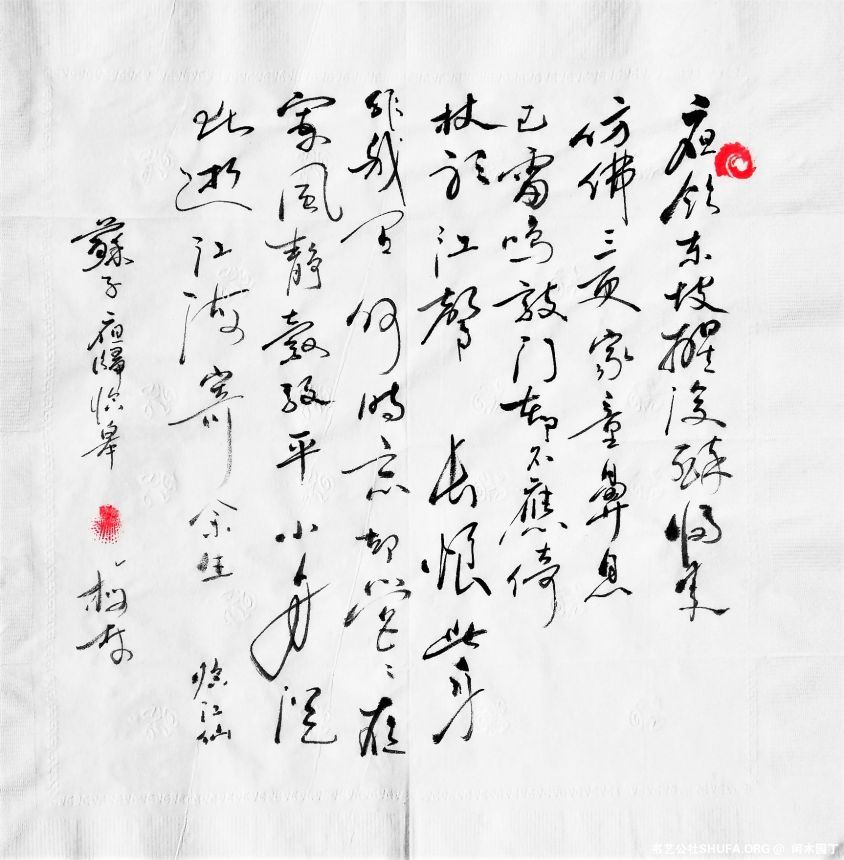 夜饮东坡醒復醉归来
仿佛三更家童鼻息
已雷鸣敲门都不應倚
杖听江聲 长恨此身
非我有何时忘却營〻夜
寒风静縠纹平小舟従
此逝江海寄余生 临江仙
蘇子夜歸临皋
布艺公社SHUFA.ORG @ 闲木园丁